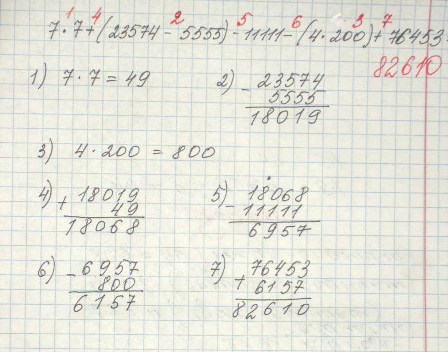 1 4 2 5 6 3 7
7·7+(23574-5555)-11111-(4·200)+76453
82610
1) 7·7=49
2) - 23574
5555
18019
3) 4·200 = 800
4) + 18019
49
18068
5) - 18068
11111
6957
6) - 6957
800
6157
7) + 76453
6157
82610